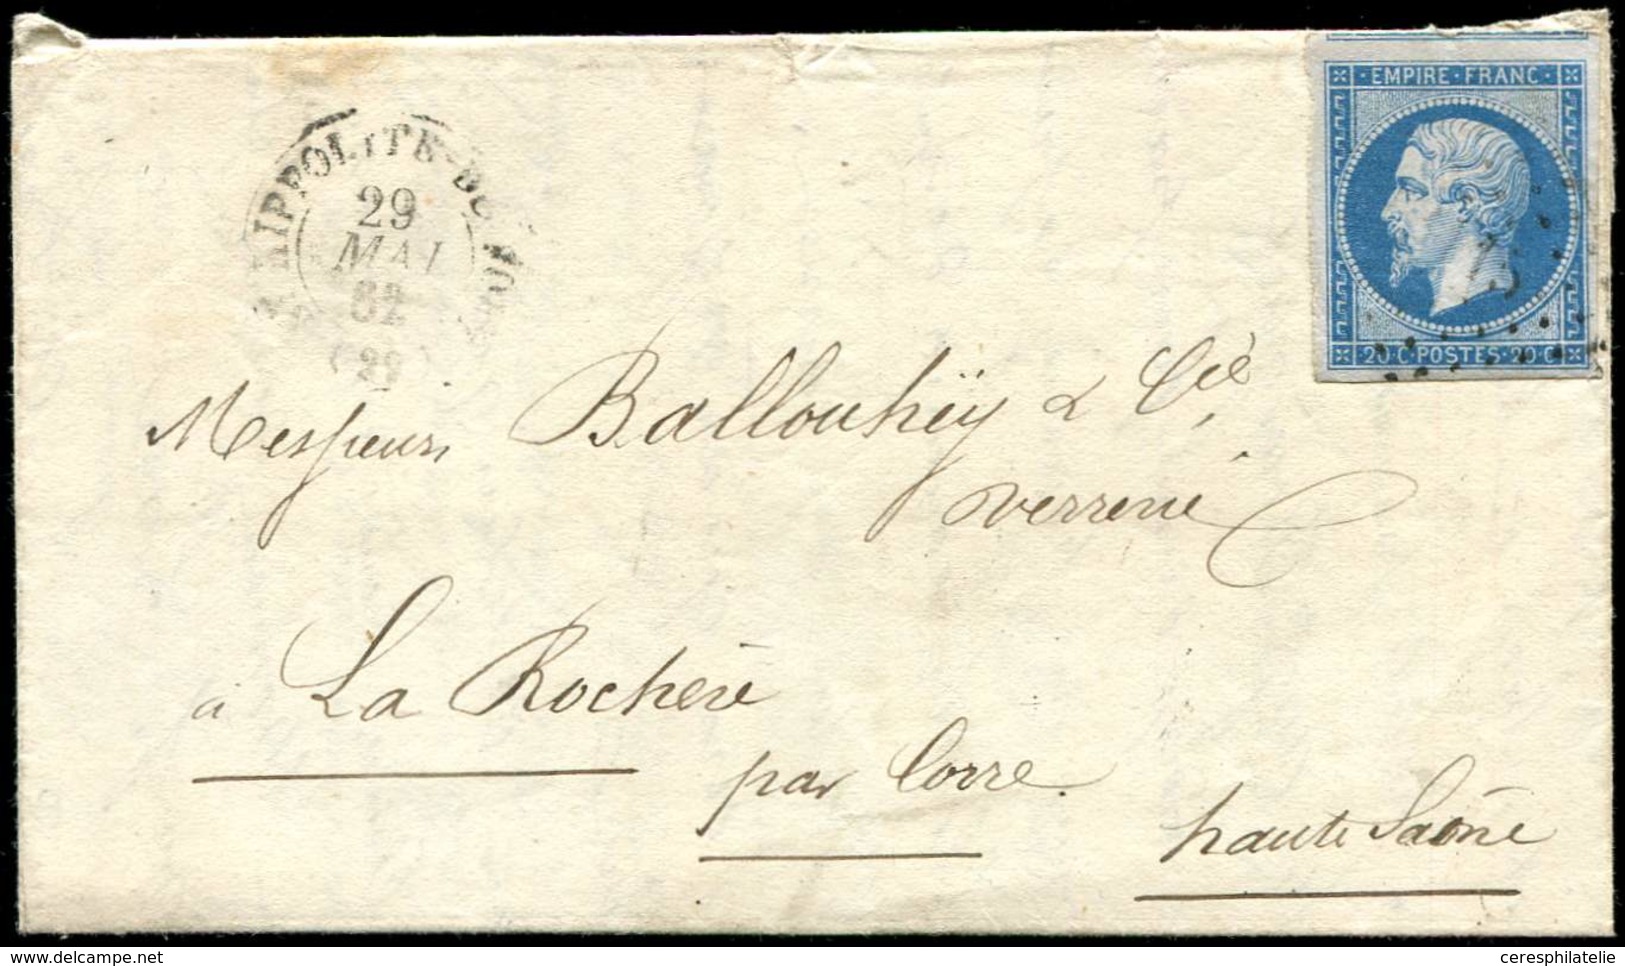 EMPIRE · FRANC ·
HIPPOLITE-DU-FORT
29
MAI
62
(29)
20 · C · POSTES · 20 · C
Messieurs Ballouhëy & Cie,
verrerie
à La Rochère
par Corre.
haute Saône
delcampe.net
ceresphilatelie